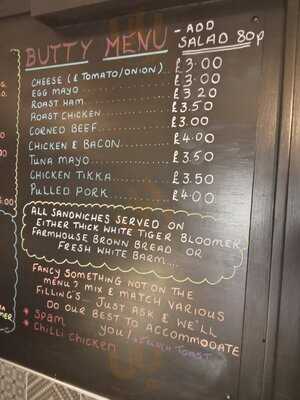 BUTTY MENU - ADD
SALAD 80p
CHEESE (& TOMATO/ONION).. £3.00
EGG MAYO............ £3.00
ROAST HAM............ £3.20
ROAST CHICKEN............ £3.50
CORNED BEEF............ £3.00
CHICKEN & BACON............ £4.00
TUNA MAYO............ £3.50
CHICKEN TIKKA............ £3.50
PULLED PORK............ £4.00
ALL SANDWICHES SERVED ON
EITHER THICK WHITE TIGER BLOOMER
FARMHOUSE BROWN BREAD OR
FRESH WHITE BARM....
FANCY SOMETHING NOT ON THE
MENU? MIX & MATCH VARIOUS
FILLING'S - JUST ASK & WE'LL
DO OUR BEST TO ACCOMMODATE
YOU!
* SPAM
* CHILLI CHICKEN